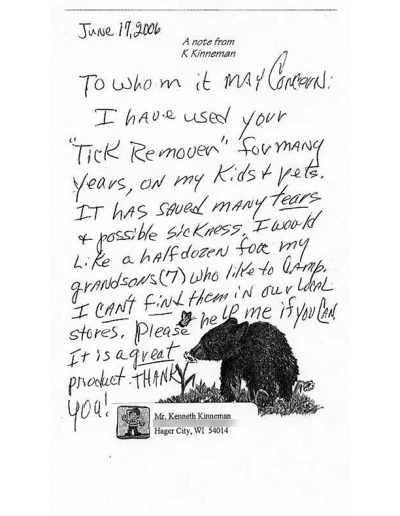 June 17, 2006
A note from
K Kinneman
To whom it may Concern:
I have used your
"Tick Remover" for many
years, on my Kids & pets.
IT has saved many tears
& possible sickness. I would
Like a half dozen for my
grandsons (7) who like to camp.
I CAN'T find them in our local
stores. Please help me if you can
It is a great
product. THANK
YOU!
Mr. Kenneth Kinneman
Hager City, WI 54014